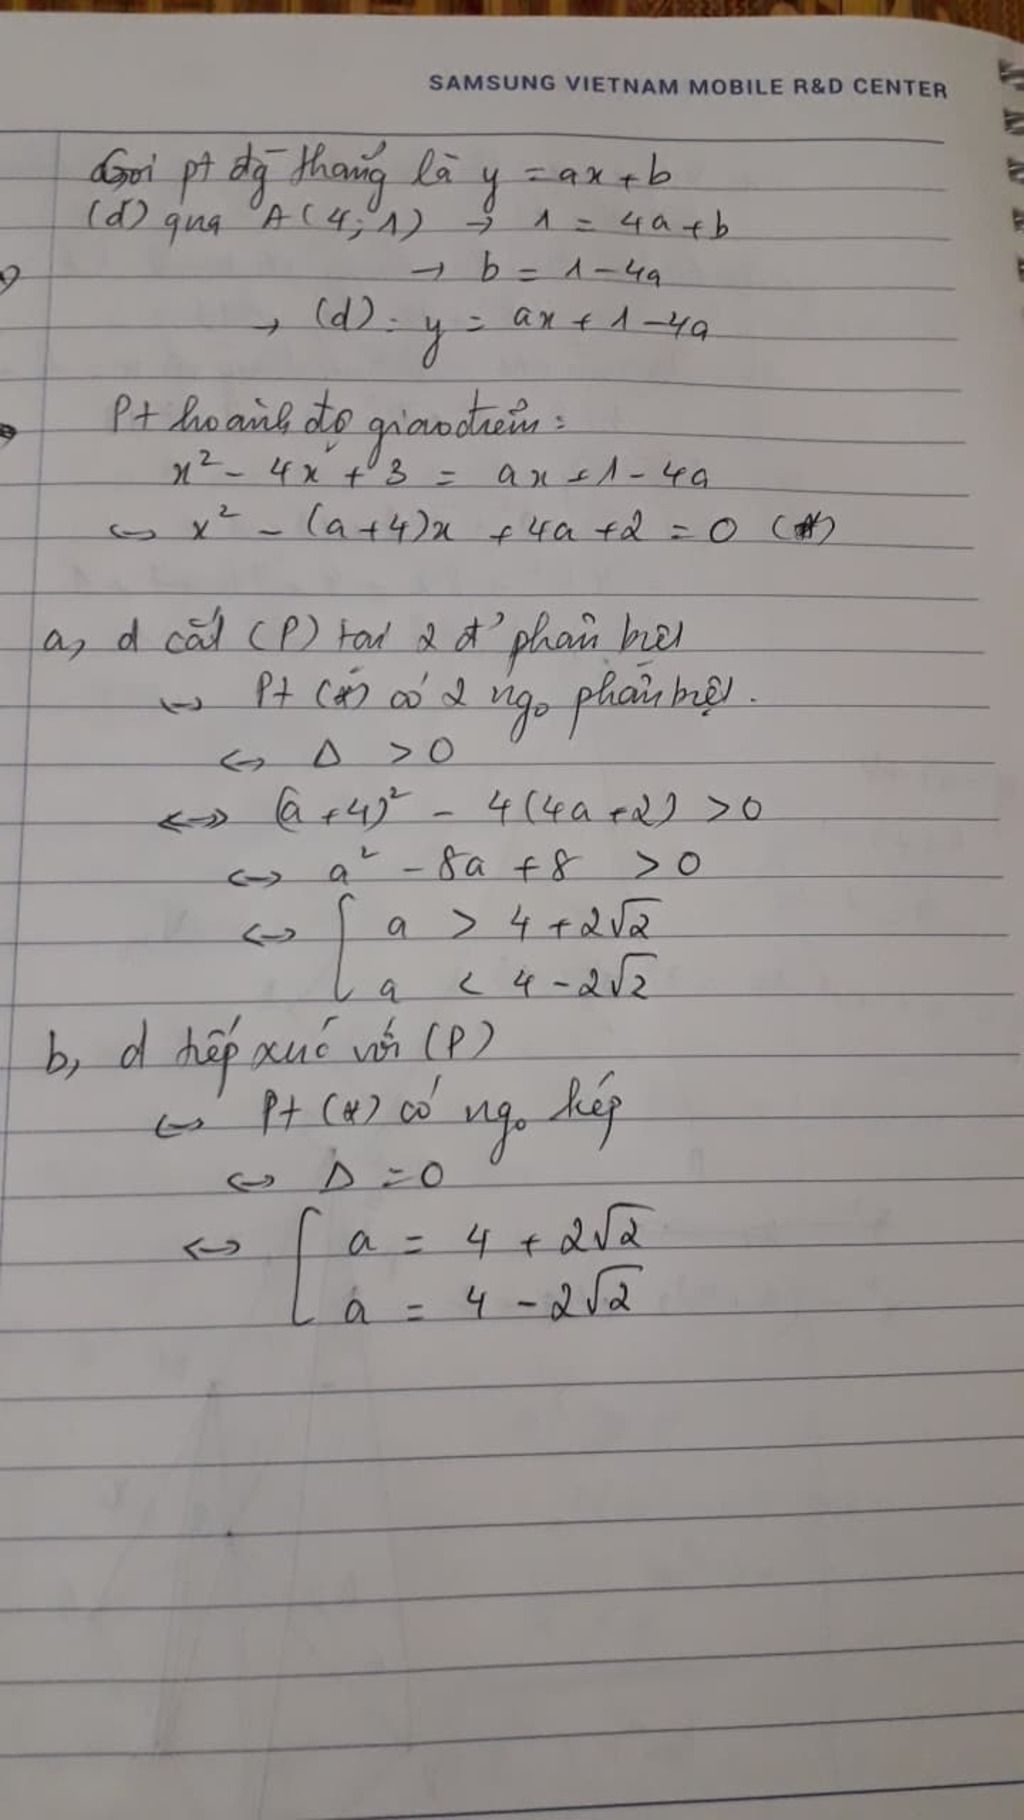 SAMSUNG VIETNAM MOBILE R&D CENTER
Gọi pt đg thẳng là y = ax + b
(d) qua A(4; 1) → 1 = 4a + b
→ b = 1 - 4a
→ (d): y = ax + 1 - 4a
Pt hoành độ giao điểm:
x² - 4x + 3 = ax + 1 - 4a
↔ x² - (a+4)x + 4a + 2 = 0 (*)
a, d cắt (P) tại 2 đ' phân biệt
↔ Pt (*) có 2 ngo phân biệt.
↔ Δ > 0
↔ (a+4)² - 4(4a+2) > 0
↔ a² - 8a + 8 > 0
↔ [ a > 4 + 2√2
a < 4 - 2√2
b, d tiếp xúc với (P)
↔ Pt (*) có ngo kép
↔ Δ = 0
↔ [ a = 4 + 2√2
a = 4 - 2√2